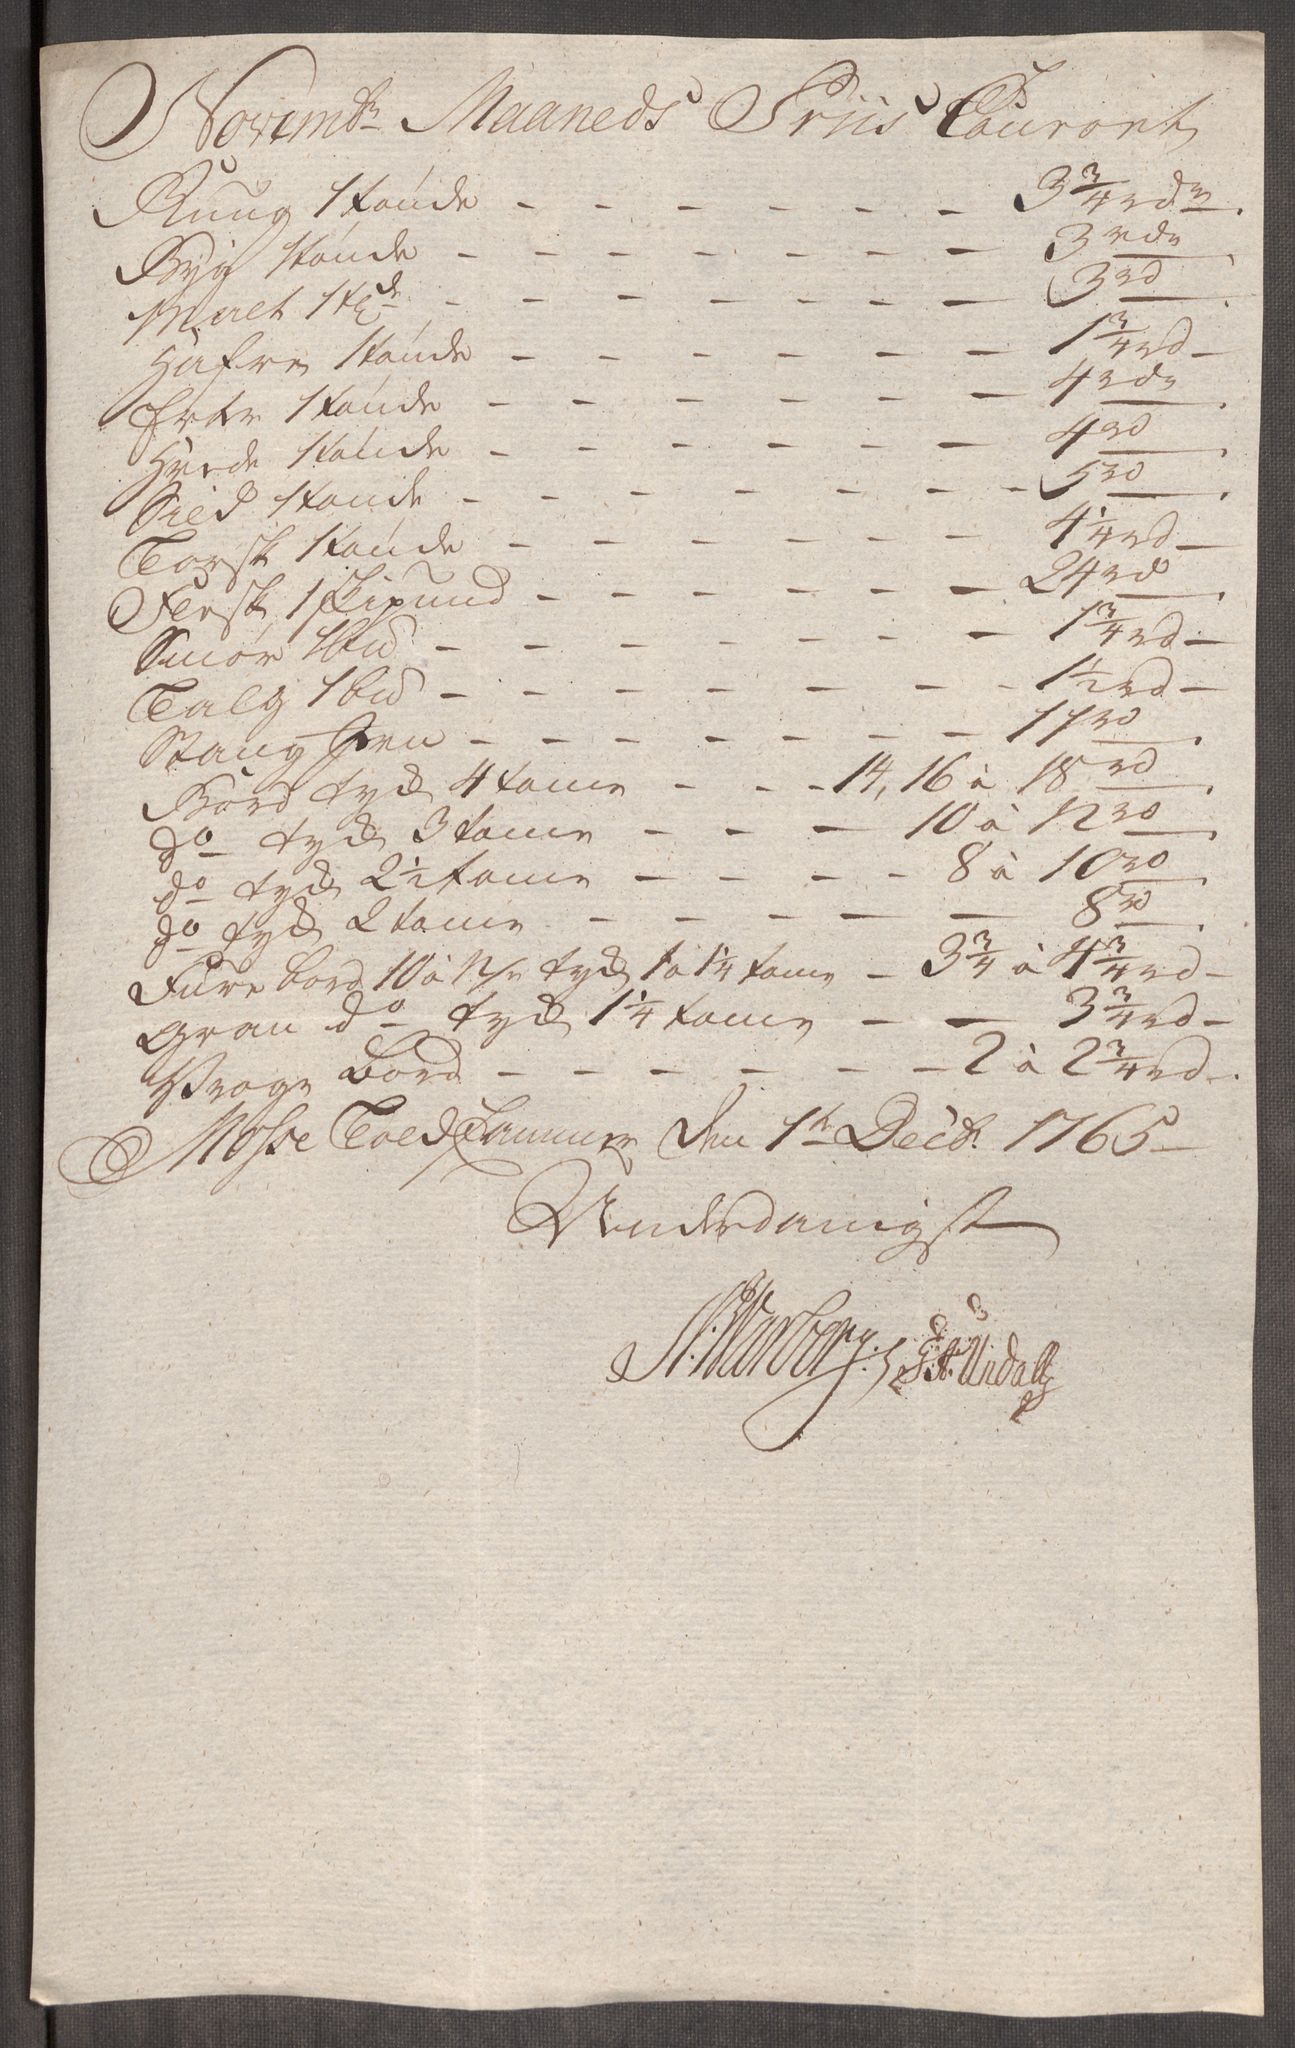 Novembr Maaneds Priis Courant
Ruug 1 tønde - - - - - - 3 3/4 rdr.
Byg 1 tønde - - - - - - - 3 rdr.
Malt 1 td - - - - - - - 3 rd.
Hafre 1 tønde - - - - - - 1 3/4 rd -
Erter 1 tønde - - - - - - - 4 rdr.
Hvede 1 tønde - - - - - - 4 rd.
Sild 1 tønde - - - - - - - 5 rd.
Torsk 1 tønde - - - - - - 4 1/4 rd -
Flesk 1 skipund - - - - - - 24 rd.
Smør 1 bud - - - - - - - 1 3/4 rd -
Talg 1 bud - - - - - - - - 1 1/2 rd -
Stang Jern - - - - - - - 11 rd.
Bord tyk 4 tome - - - 14, 16 à 18 rd.
do tyk 3 tome - - - 10 à 12 rd.
do tyk 2 1/2 tome - - - - 8 à 10 rd.
do tyk 2 tome - - - - - 8 rd.
Fure bord 10 à 12/r tyk 1 à 1 1/4 tome - 3 3/4 à 4 3/4 rd -
Gran do tyk 1 1/4 tome - - 3 3/4 rd -
Vrage Bord - - - - - - 2 à 2 3/4 rd -.
Mosse Toldkammer den 1te Decbr. 1765
Underdanigst
Warberg.